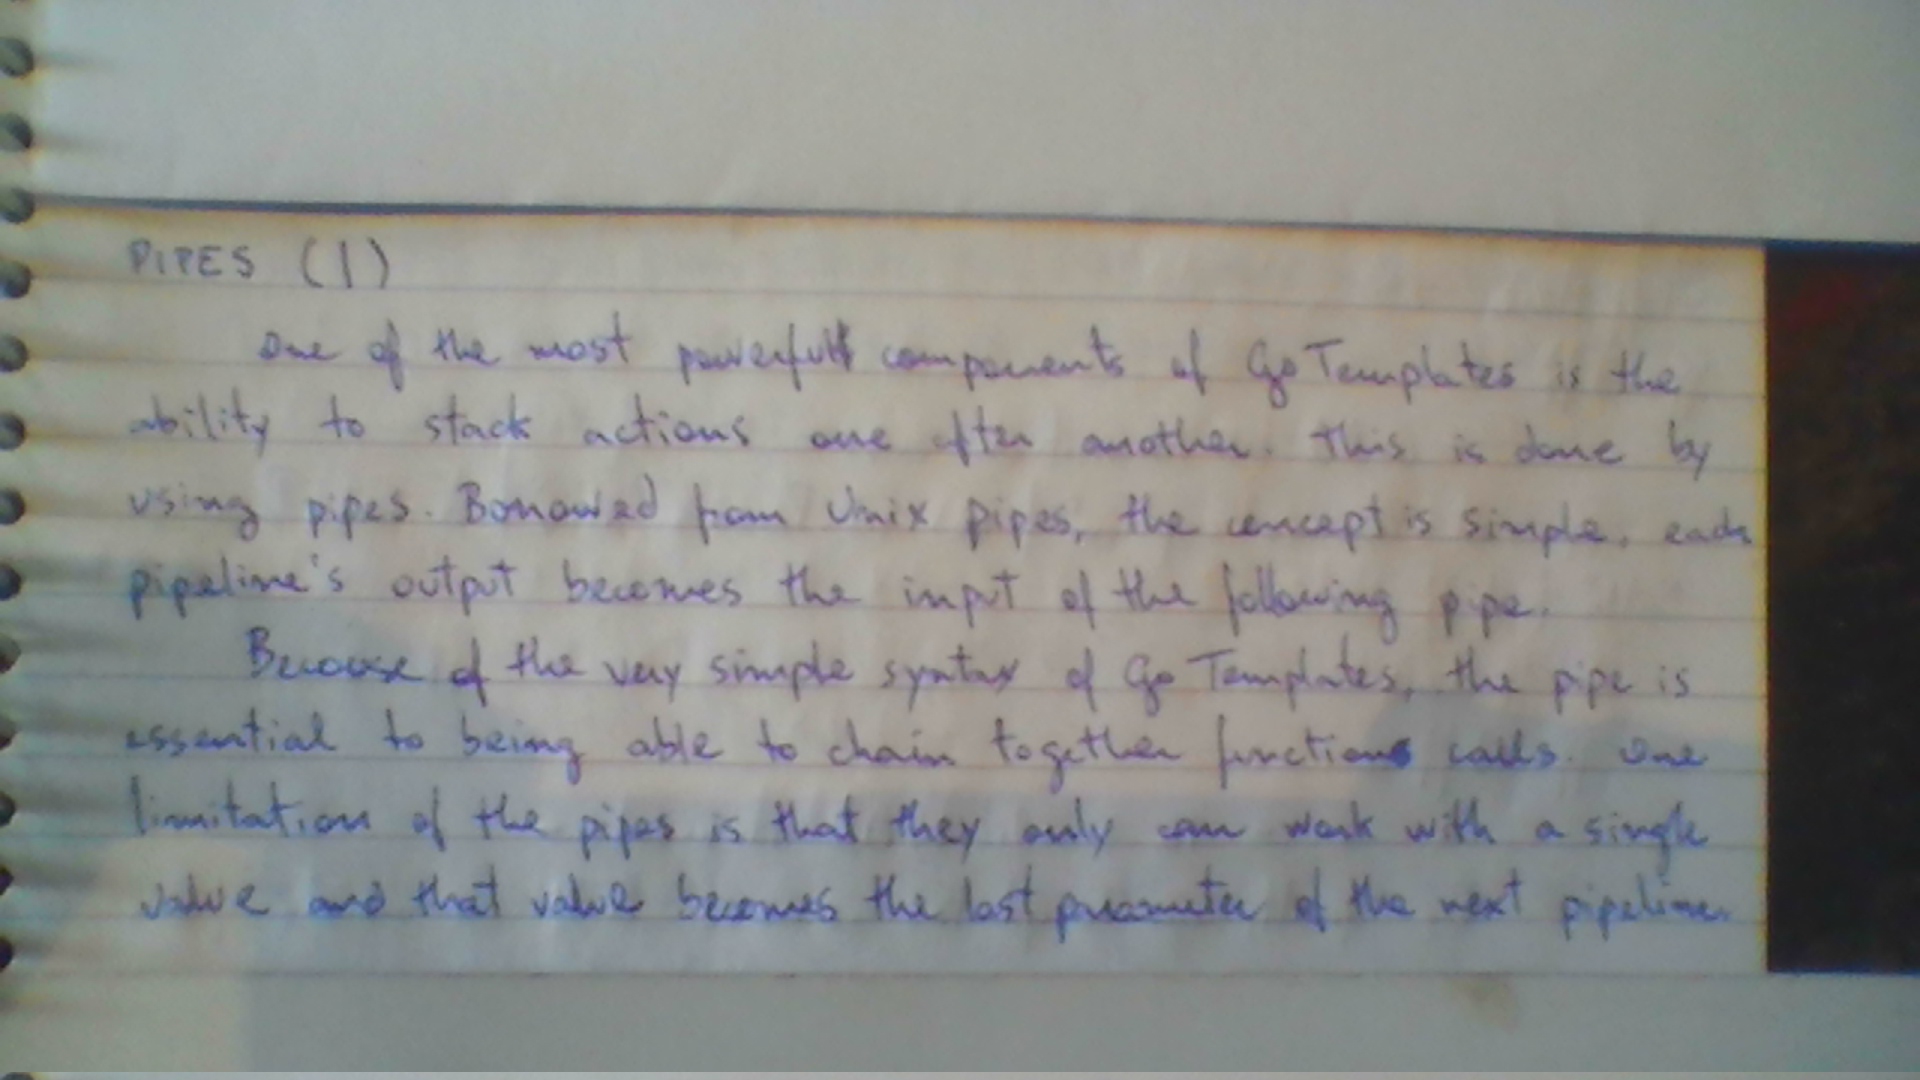 PIPES (|)
One of the most powerfull components of Go Templates is the
ability to stack actions one after another. This is done by
using pipes. Borrowed from Unix pipes, the concept is simple, each
pipeline's output becomes the input of the following pipe.
Because of the very simple syntax of Go Templates, the pipe is
essential to being able to chain together functions calls. One
limitation of the pipes is that they only can work with a single
value and that value becomes the last parameter of the next pipeline.